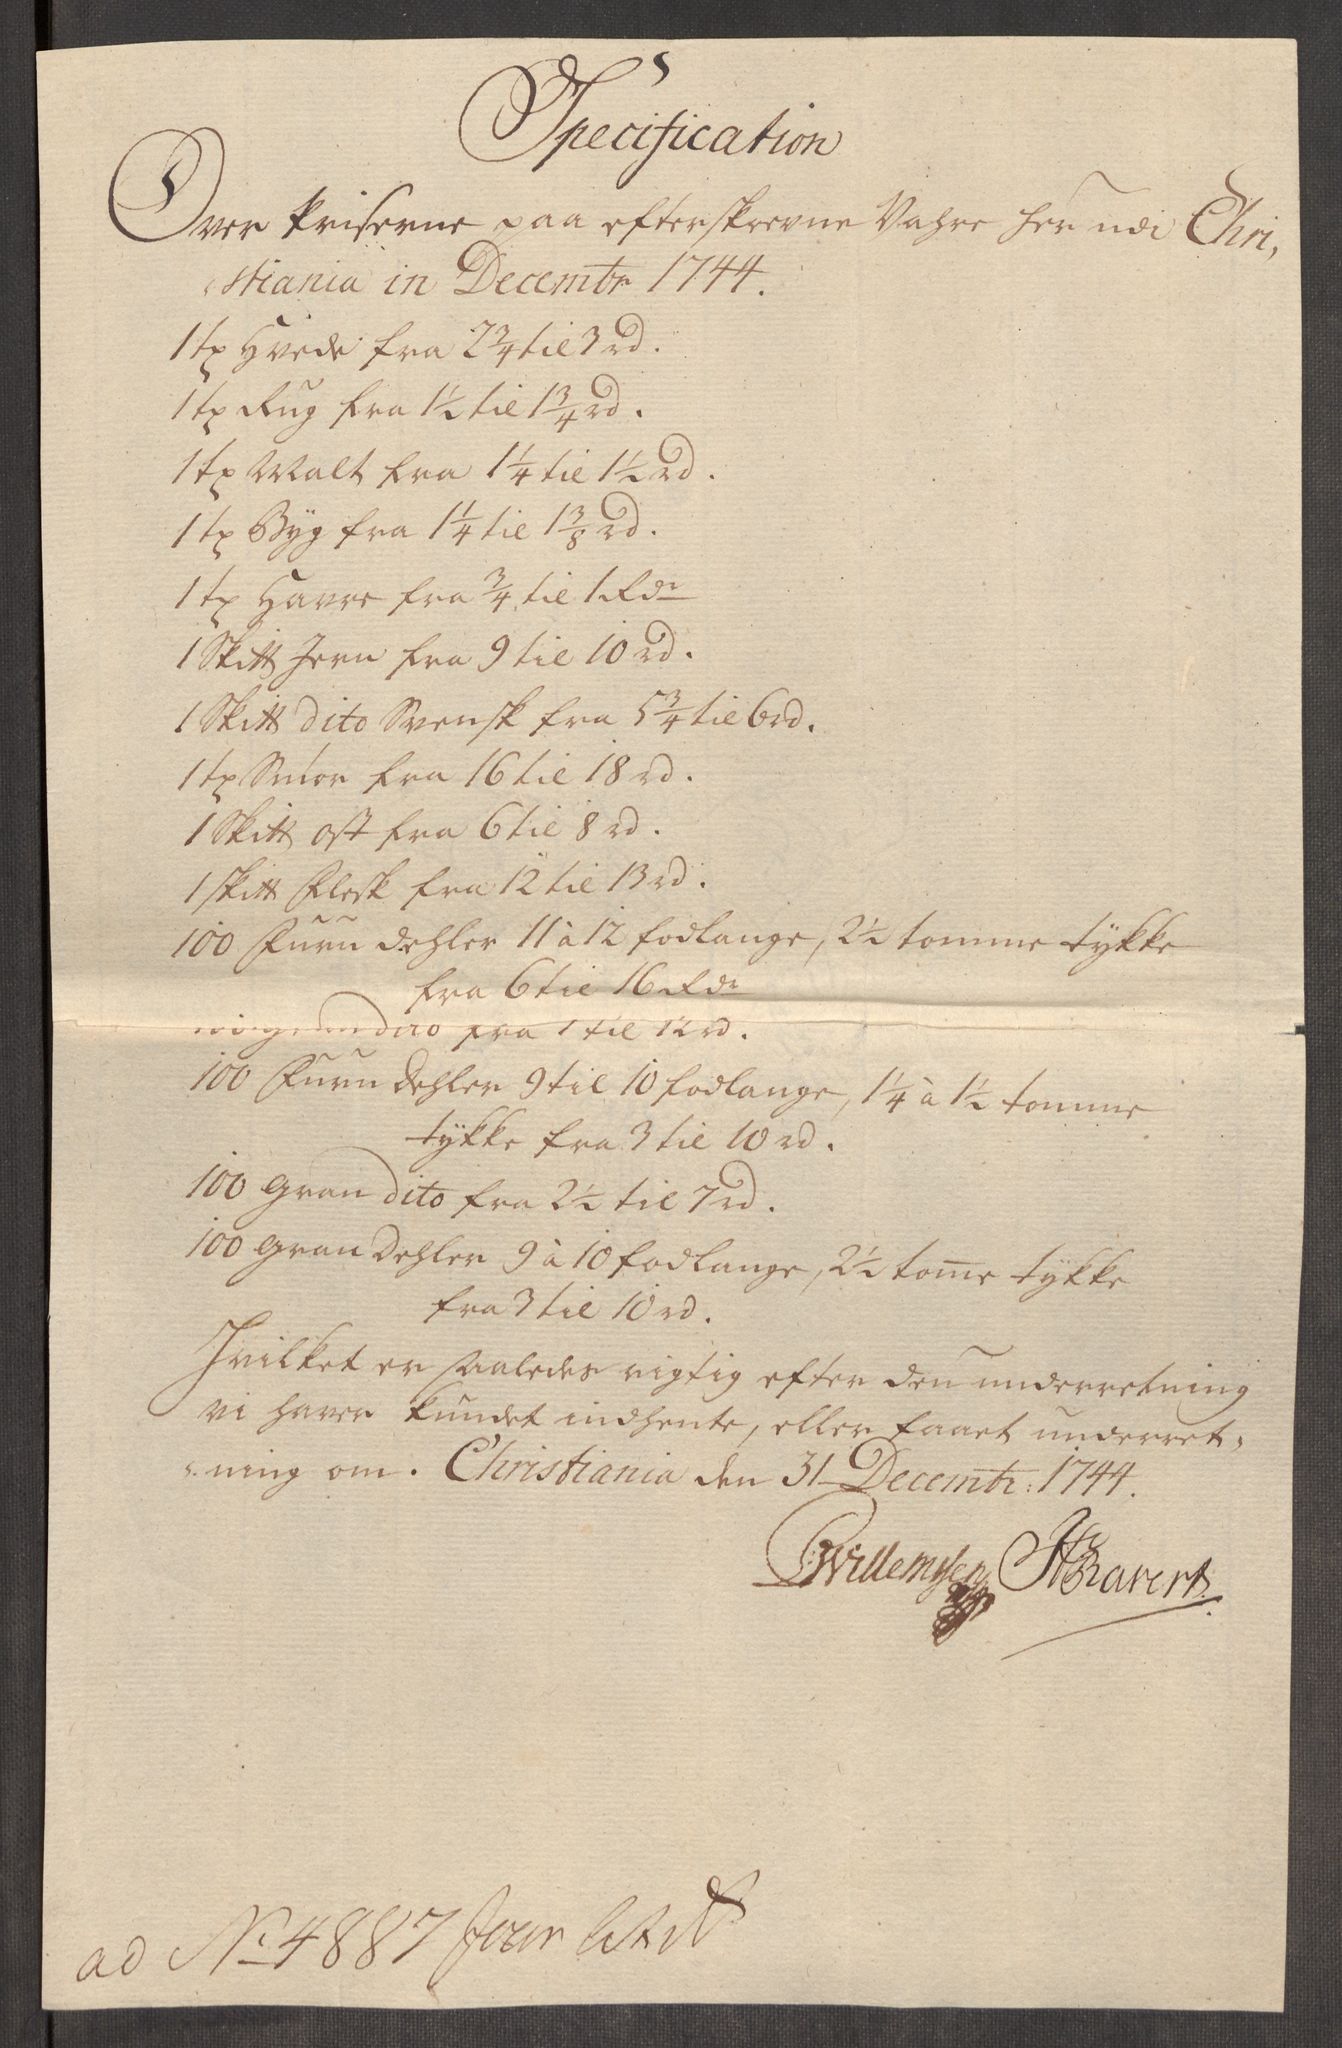 Specification
Over Priserne paa efterskrevne Vahre her udi Chri,
stiania in Decembr 1744.
1 tp Hvede fra 2¾ til 3 rd.
1 tp Rug fra 1½ til 1¾ rd.
1 tp Malt fra 1¼ til 1½ rd.
1 tp Byg fra 1¼ til 1⅜ rd.
1 tp Havre fra ¾ til 1 Rdr
1 Skitt Jern fra 9 til 10 rd.
1 Skitt dito Svensk fra 5¾ til 6 rd.
1 tp Smør fra 16 til 18 rd.
1 Skitt ost fra 6 til 8 rd.
1 skitt Flesk fra 12 til 13 rd.
100 Furu dehler 11 à 12 fodlange, 2½ tomme tykke
fra 6 til 16 Rdr
gran dito fra til 12 rd.
100 Furu dehler 9 til 10 fodlange, 1¼ à 1½ tomme
tykke fra 3 til 10 rd.
100 gran dito fra 2½ til 7 rd.
100 gran Dehler 9 à 10 fodlange, 2½ tom̄e tykke
fra 3 til 10 rd.
Hvilket er saaledes rigtig efter den underretning
vi haver kundet indhente, eller faaet underret,
ning om. Christiania den 31 Decembr: 1744.
Willemsen
ad No 4887 Jour